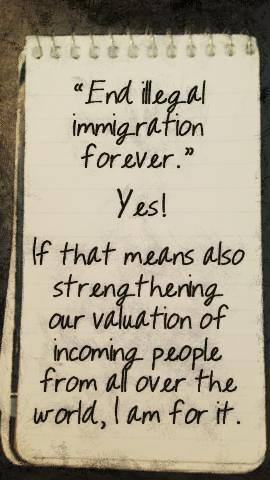 “End illegal
immigration
forever.”
Yes!
If that means also
strengthening
our valuation of
incoming people
from all over the
world, I am for it.